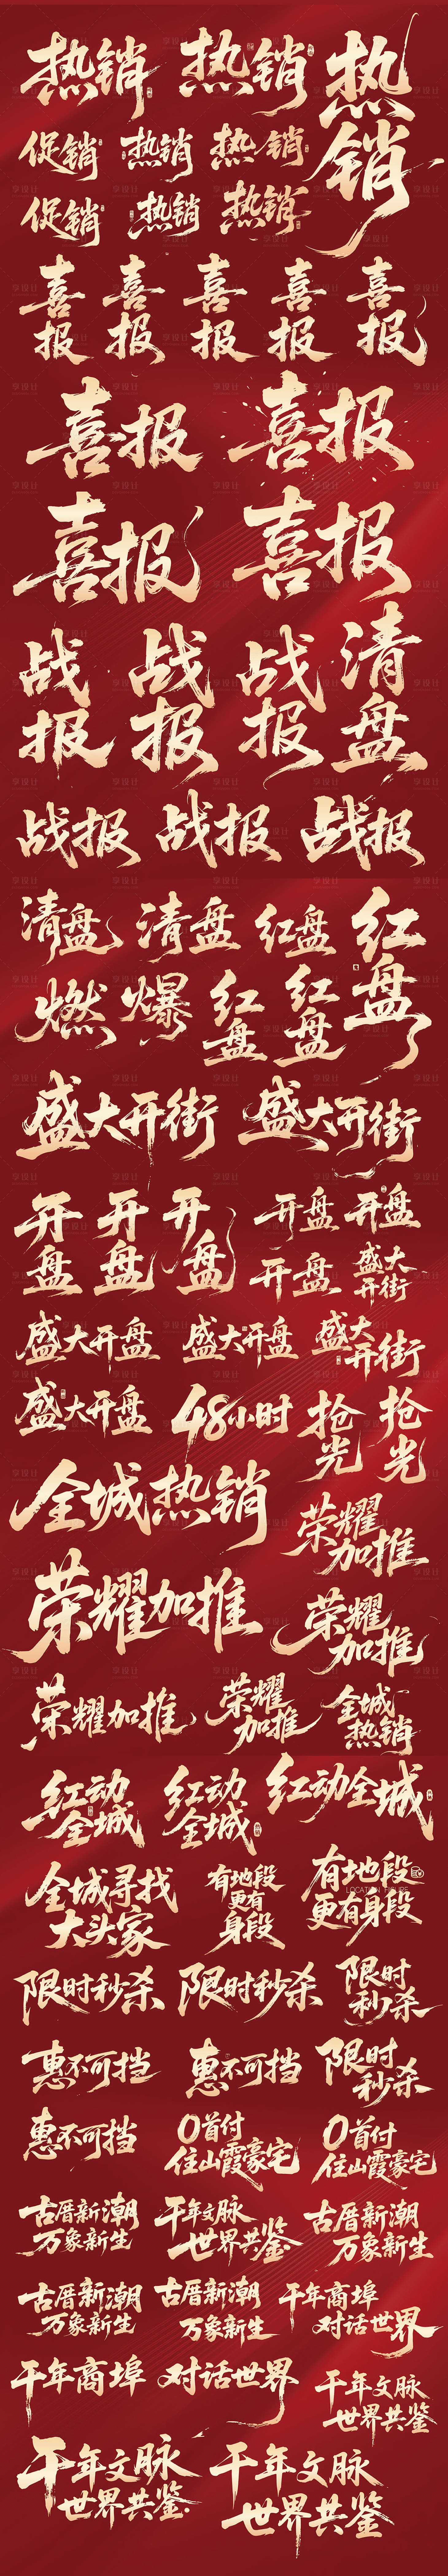 热销 热销 热销
促销 热销 热销
促销 热销 热销
喜报 喜报 喜报 喜报 喜报
喜报 喜报
喜报 喜报
战报 战报 战报 清盘
战报 战报 战报
清盘 清盘 红盘 红盘
燃 爆 红盘 红盘
盛大开街 盛大开街
开盘 开盘 开盘 开盘 开盘
开盘 盛大开街
盛大开盘 盛大开盘 盛大开街
盛大开盘 48小时 抢光 抢光
全城热销
荣耀加推
荣耀加推
荣耀加推
荣耀加推 荣耀加推 全城热销
红动全城 红动全城 红动全城
全城寻找
大头家
有地段
更有
身段
有地段
LOCATION
更有身段
限时秒杀 限时秒杀 限时秒杀
惠不可挡 惠不可挡 限时秒杀
惠不可挡
0首付
住山霞豪宅
0首付
住山霞豪宅
古厝新潮
万象新生
千年文脉
世界共鉴
古厝新潮
万象新生
古厝新潮
万象新生
古厝新潮
万象新生
千年商埠
对话世界
千年商埠 对话世界
千年文脉
世界共鉴
千年文脉
世界共鉴
千年文脉
世界共鉴